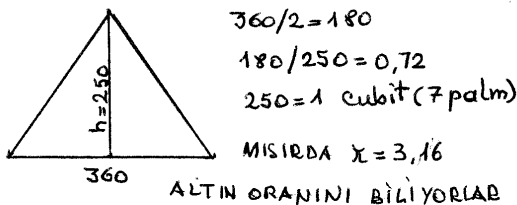 360/2=180
180/250=0,72
250=1 cubit (7 palm)
h=250
MISIRDA π=3,16
360
ALTIN ORANINI BİLİYORLAR